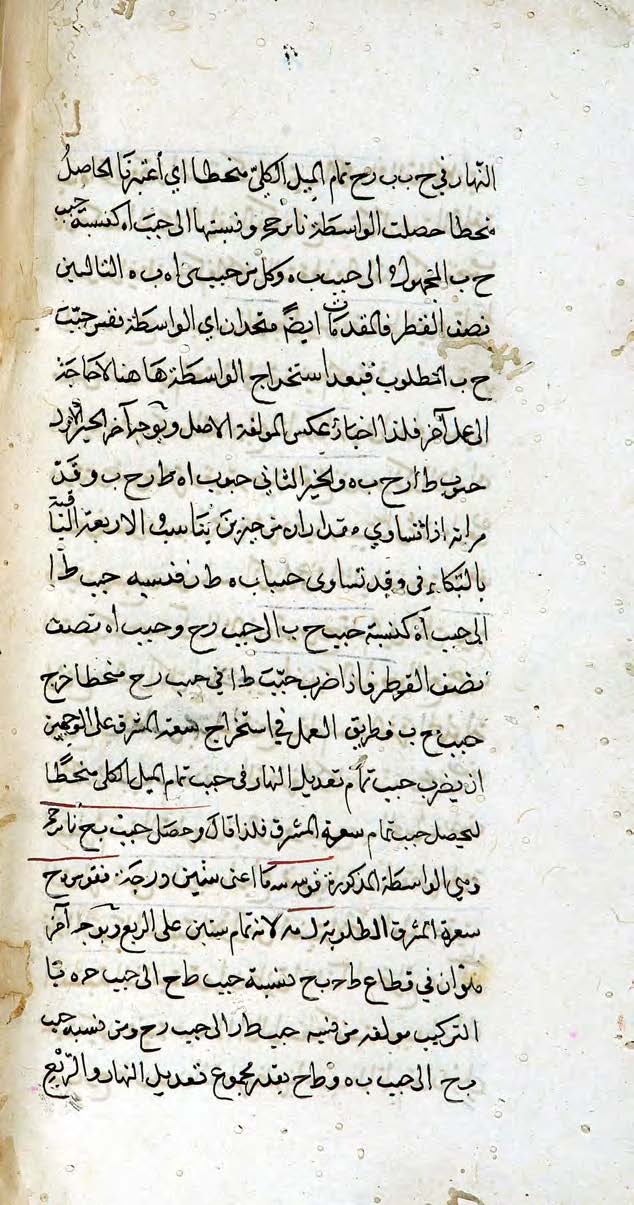 النهار في ح ب ب رح تمام الميل الكلي منحطا اي أعتبرنا الحاصل
منحطا حصلت الواسطة نا نر حح ونسبتها الى جيب اه كنسبة جيب
ح ب المجهول الى جيب ب ه وكل من جيبى اه ب ه التاليين
نصف القطر فالمقدمان ايضًا متحدان اي الواسطة نفس جيب
ح ب المطلوب فبعد استخراج الواسطة هاهنا لا حاجة
الى عمل آخر فلذا اختار عكس المولفة الاصل وبوجه آخر الحيز الاول
جيوب ط ا رح ب ه والحيز الثاني جيوب اه ط رح ب وقد
مر انه اذا تساوي مقداران من حيزين يتناسب الاربعة الباقية
بالتكافي وقد تساوى جيبا ب ه ط ر فنسبة جيب ط ا
الى جيب اه كنسبة جيب ح ب الى جيب رح وجيب اه نصف
نصف القطر فاذا ضرب جيب ط ا في جيب رح منحطا خرج
جيب ح ب فطريق العمل في استخراج سعة المشرق على الوجهين
ان يضرب جيب تمام تعديل النهار في جيب تمام الميل الكلي منحطًا
ليحصل جيب تمام سعة المشرق فلذا قال وحصل جيب ب ح نا نر حح
وهي الواسطة المذكورة قوسه س ما اعنى ستين درجة فقوس ه ح
سعة المشرق المطلوبة ل مه لانه تمام ستين على الربع وبوجه آخر
ملوان في قطاع ط ح ب ح نسبة جيب ط ح الى جيب ح ه بتا
التركيب مولفه من نسبه جيب ط ر الى جيب رح ومن نسبة جيب
ب ح الى جيب ب ه وط ح بقدر مجموع تعديل النهار والربع